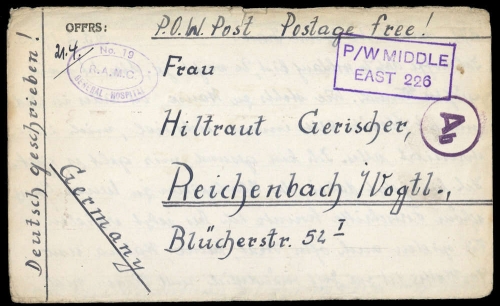 OFFRS: P.O.W. Post Postage free!
21.4.
No. 19
R.A.M.C.
GENERAL HOSPITAL
P/W MIDDLE
EAST 226
Frau
Hiltraut Gerischer,
Ab
Reichenbach / Vogtl.,
Blücherstr. 52 I
Germany
Deutsch geschrieben!